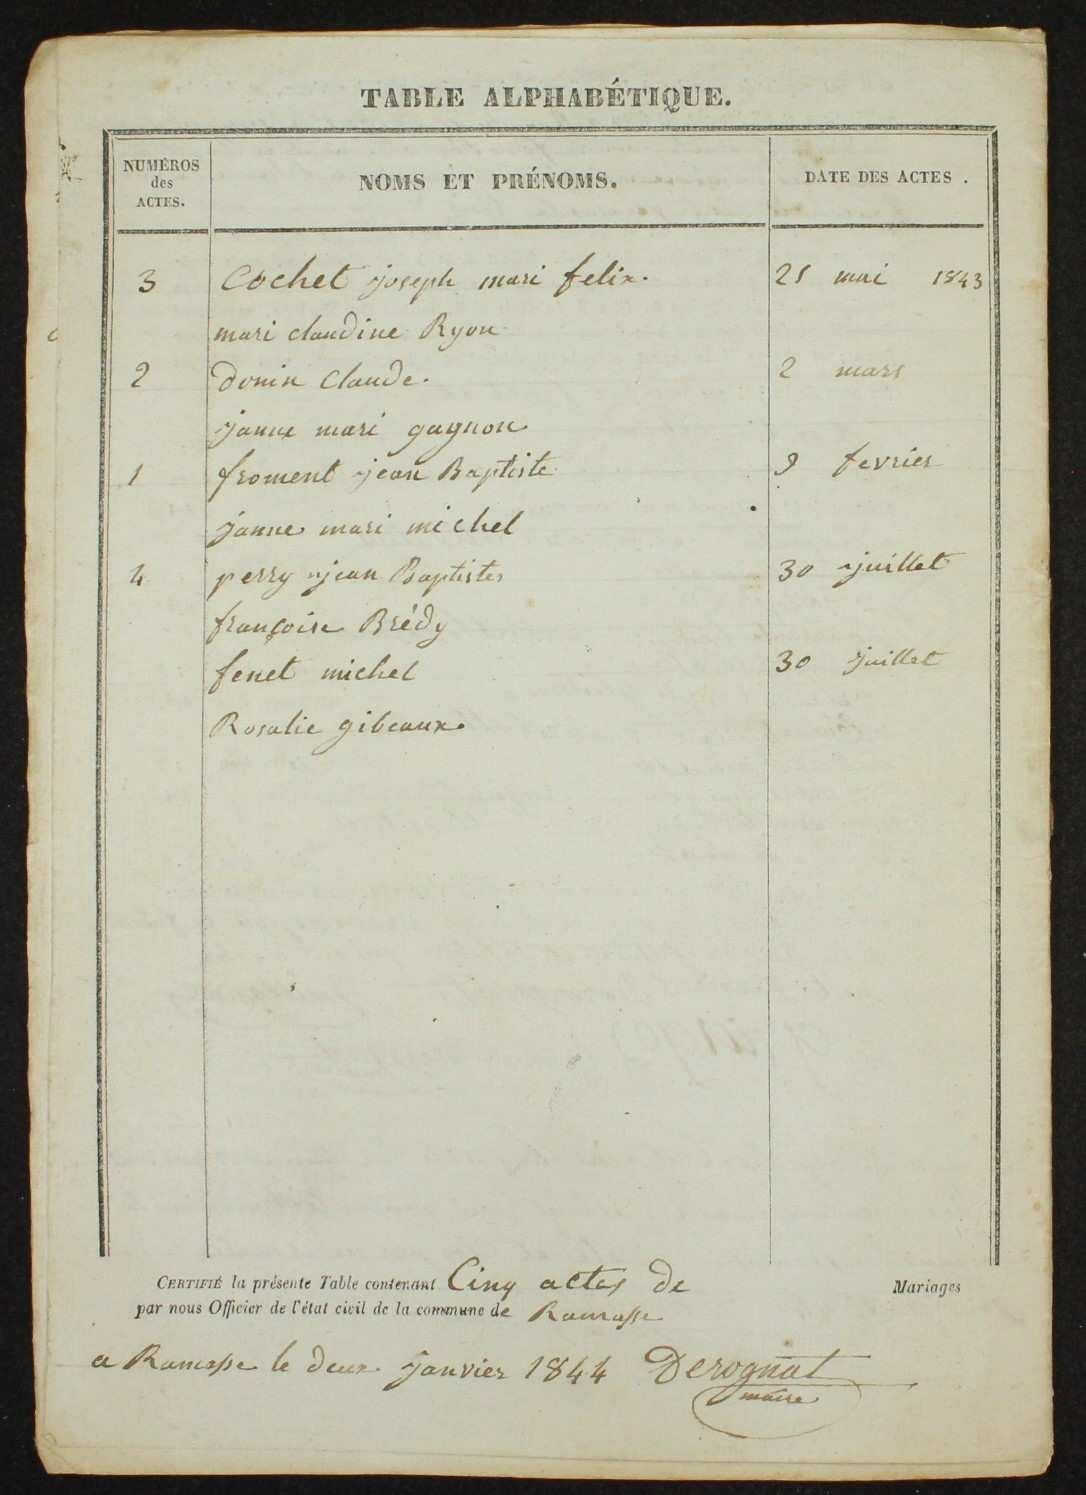 TABLE ALPHABÉTIQUE.
NUMÉROS des ACTES.
NOMS ET PRÉNOMS.
DATE DES ACTES.
3 Cochet joseph mari felix. 21 mai 1843
mari claudine Ryon
2 donin Claude. 2 mars
janne mari gagnon
1 froment jean Baptiste 9 fevrier
janne mari michel
4 perry jean Baptiste 30 juillet
françoise Brédy
fenet michel 30 juillet
Rosalie gibeaux.
CERTIFIÉ la présente Table contenant Cinq actes de Mariages
par nous Officier de l'état civil de la commune de Ramasse
a Ramasse le deux janvier 1844 Derognat
maire